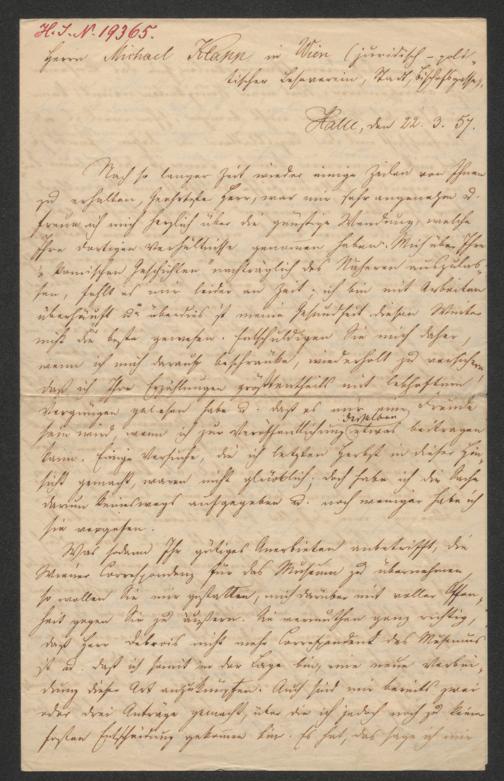 H. I. N. 19365.
Herrn Michael Klapp in Wien (juridisch-poli-
tischer Leseverein, Stadt, Bischofsgasse).
Halle, den 22. 3. 57.
Nach so langer Zeit wieder einige Zeilen von Ihnen
zu erhalten, Geehrtester Herr, war mir sehr angenehm u.
freue ich mich herzlich über die günstige Wendung, welche
Ihre dortigen Verhältnisse genommen haben. Mich über Ihre
" komischen Geschichten nachträglich des Näheren auszulas-
sen, fehlt es mir leider an Zeit; ich bin mit Arbeiten
überhäuft u. überdies ist meine Gesundheit diesen Winter
nicht die beste gewesen. Entschuldigen Sie mich daher,
wenn ich mich darauf beschränke, wiederholt zu versichern
daß ich Ihre Erzählungen größtentheils mit lebhaftem
Vergnügen gelesen habe u. daß es mir eine Freude
sein wird, wenn ich zur Veröffentlichung derselben etwas beitragen
kann. Einige Versuche, die ich letzten Herbst in dieser Hin-
sicht gemacht, waren nicht glücklich; doch habe ich die Sache
darum keineswegs aufgegeben u. noch weniger habe ich
sie vergessen.
Was sodann Ihr gütiges Anerbieten anbetrifft, die
Wiener Correspondenz für das Museum zu übernehmen
so wollen Sie mir gestatten, mich darüber mit voller Offen-
heit gegen Sie zu äußern. Sie vermuthen ganz richtig,
daß Herr Debrois nicht mehr Correspondent des Museums
ist u. daß ich somit in der Lage bin, eine neue Verbin-
dung dieser Art anzuknüpfen. Auch sind mir bereits zwei
oder drei Anträge gemacht, über die ich jedoch noch zu keiner
festen Entscheidung gekommen bin. Es hat, das sage ich nun